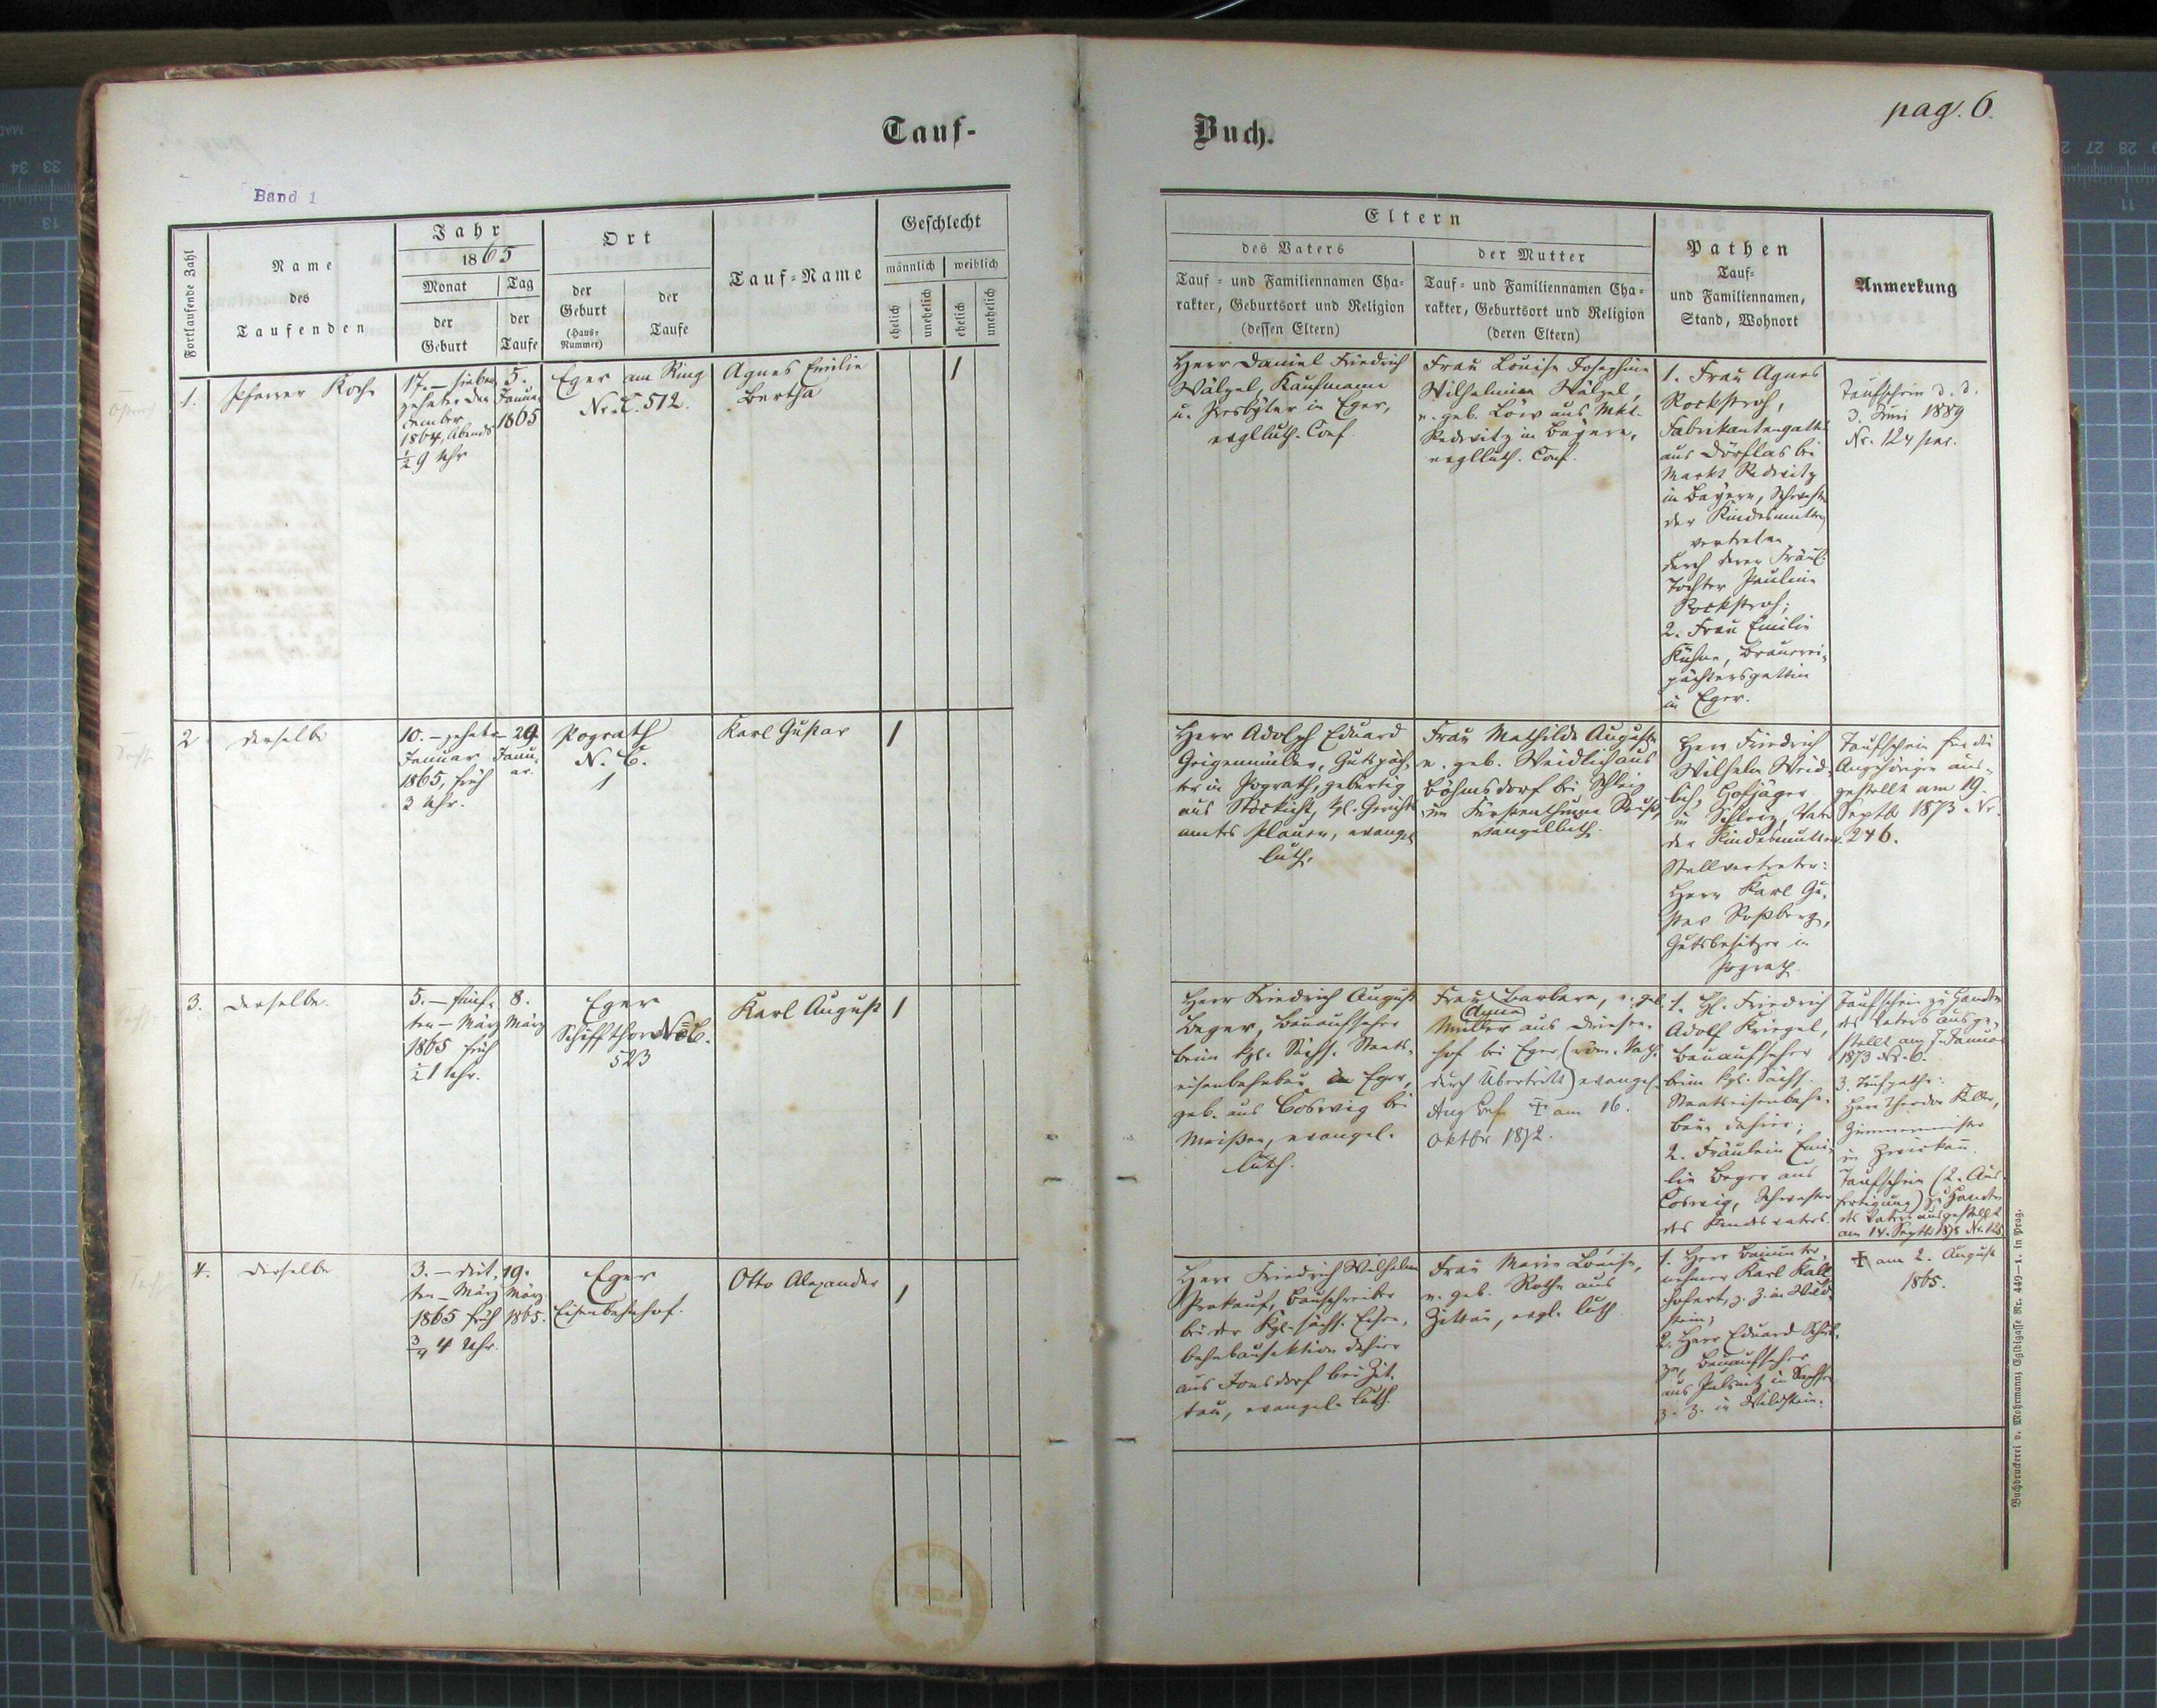 Tauf-
Buch.
pag. 6.
Band 1
Fortlaufende Zahl
Name
des
Taufenden
Jahr
1865
Monat
Tag
der
Geburt
der
Taufe
Ort
der
Geburt
(Haus-
Nummer)
der
Taufe
Tauf-Name
Geschlecht
männlich
weiblich
ehelich
unehelich
ehelich
unehelich
Eltern
des Vaters
Tauf- und Familiennamen Cha-
rakter, Geburtsort und Religion
(dessen Eltern)
der Mutter
Tauf- und Familiennamen Cha-
rakter, Geburtsort und Religion
(deren Eltern)
Pathen
Tauf-
und Familiennamen,
Stand, Wohnort
Anmerkung
1.
Pfarrer Koch
17. – sieben
zehnter De-
cember
1864, Abends
½ 9 Uhr
5.
Januar
1865
Eger am Ring
Nr. C. 512.
Agnes Emilie
Bertha
1
Herr Daniel Friedrich
Wälzel, Kaufmann
u. Presbyter in Eger,
evglluth. Conf.
Frau Louise Josephine
Wilhelmine Wälzel,
n. geb. Löw aus Mkt.
Redwitz in Bayern,
evglluth. Conf.
1. Frau Agnes
Rockstroh,
Fabrikantengattin
aus Dörflas bei
Markt Redwitz
in Bayern, Schwester
der Kindesmutter,
vertreten
durch deren Fräul.
Tochter Pauline
Rockstroh;
2. Frau Emilie
Kühne, Brauerei-
pächtersgattin
in Eger.
Taufschein d. d.
3. Juni 1889
Nr. 124
2
derselbe
10. – zehnter
Januar
1865, früh
3 Uhr.
29.
Janu-
ar.
Pograth
N. C.
1
Karl Gustav
1
Herr Adolph Eduard
Geigenmüller, Gutspäch-
ter in Pograth, gebürtig
aus Stöckicht, kgl. Gerichts
amtes Plauen, evangel
luth.
Frau Mathilde Auguste
n. geb. Weidlich aus
Böhmsdorf bei Schleiz
im Fürstenthume Reuß,
evangelluth.
Herr Friedrich
Wilhelm Weid-
lich, Hofjäger
in Schleiz, Vater
der Kindesmutter.
Stellvertreter:
Herr Karl Gu-
stav Roßberg,
Gutsbesitzer in
Pograth.
Taufschein für die
Angehörigen aus-
gestellt am 19.
Septb. 1873 Nr.
246.
3.
derselbe.
5. – fünf-
ten – März
1865 früh
½ 1 Uhr.
8.
März
Eger
Schiffthor No C.
523
Karl August
1
Herr Friedrich August
Beger, Bauaufseher
beim kgl. Sächs. Staats-
eisenbahnbau in Eger,
geb. aus Coswig bei
Meißen, evangel.
luth.
Frau Barbara, n. geb.
(Anna)
Müller aus
hof bei Eger (röm. kath.
durch Übertritt) evangel.
Aug Conf. ‡ am 16.
Oktbr 1872.
1. Hr. Friedrich
Adolf Kriegel,
Bauaufseher
beim kgl. Sächs.
Staatseisenbahn-
bau dahier;
2. Fräulein Emi-
lie Beger aus
Coswig, Schwester
des Kindesvaters.
Taufschein zu Handen
des Vaters ausge-
stellt am 7. Januar
1873 Nr. 6.
3. Taufpathe:
Herr Theodor Keller,
Zimmermeister
in Zwickau.
Taufschein (2. Aus-
fertigung) zu Handen
des Vaters ausgestellt
am 14. Septb. 1878 Nr. 128
4.
derselbe
3. – drit-
ten – März
1865 früh
¾ 4 Uhr.
19.
März
1865.
Eger
Eisenbahnhof.
Otto Alexander
1
Herr Friedrich Wilhelm
Prokauf, Bauschreiber
bei der Kgl. sächs. Eisen-
bahnbausektion dahier
aus Jonsdorf bei Zit-
tau, evangel. luth.
Frau Marie Louise,
n. geb. Rothe aus
Zittau, evgl. luth.
1. Herr Bauunter-
nehmer Karl Kall
hofert, z. Z. in Wild-
stein;
2. Herr Eduard Schul-
ze, Bauaufseher
aus Pulsnitz in Sachsen
z. Z. in Wildstein.
‡ am 2. August
1865.
Buchdruckerei v. Mohrmann, Egidigasse Nr. 440–1. in Prag.